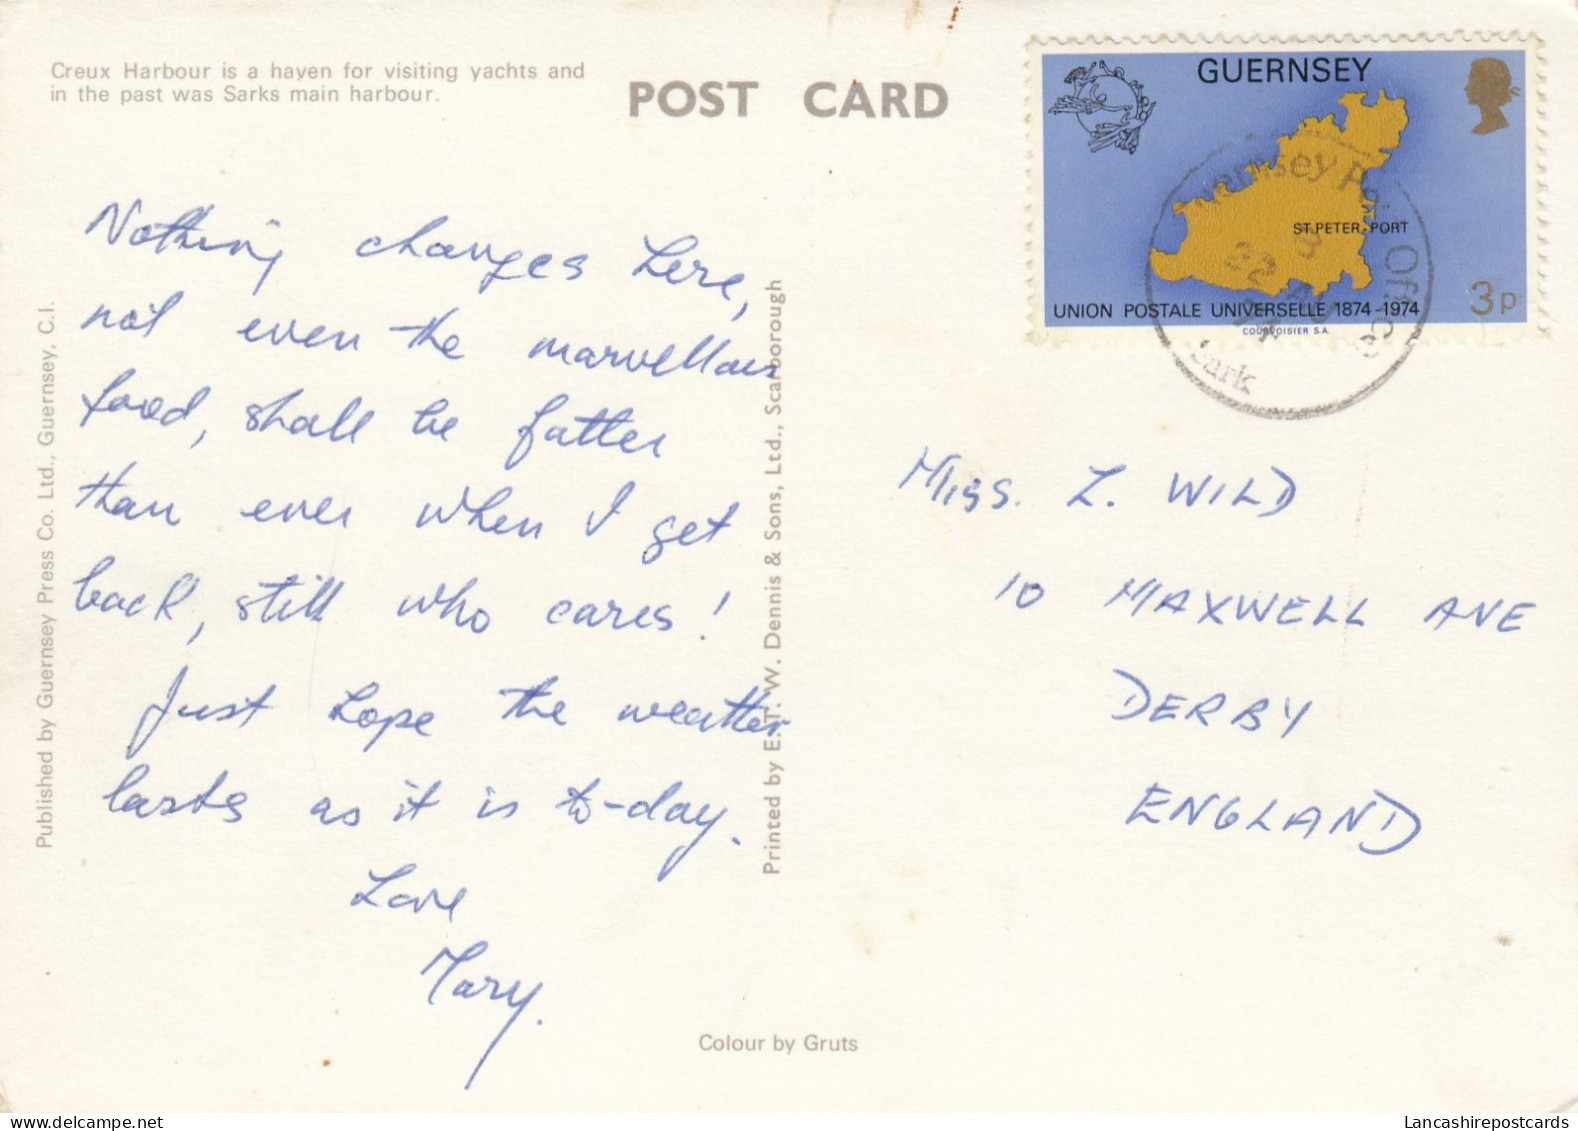 Creux Harbour is a haven for visiting yachts and
in the past was Sarks main harbour.
POST CARD
Nothing changes here,
not even the marvellous
food, shall be fatter
than ever when I get
back, still who cares!
Just hope the weather
lasts as it is to-day.
Love
Mary.
Published by Guernsey Press Co. Ltd., Guernsey, C.I.
Printed by E.T.W. Dennis & Sons, Ltd., Scarborough
Colour by Gruts
GUERNSEY
ST. PETER-PORT
3p
UNION POSTALE UNIVERSELLE 1874-1974
COURVOISIER S.A.
Guernsey Post Office
22 AU
Sark
Miss. L. WILD
10 MAXWELL AVE
DERBY
ENGLAND
Lancashirepostcards